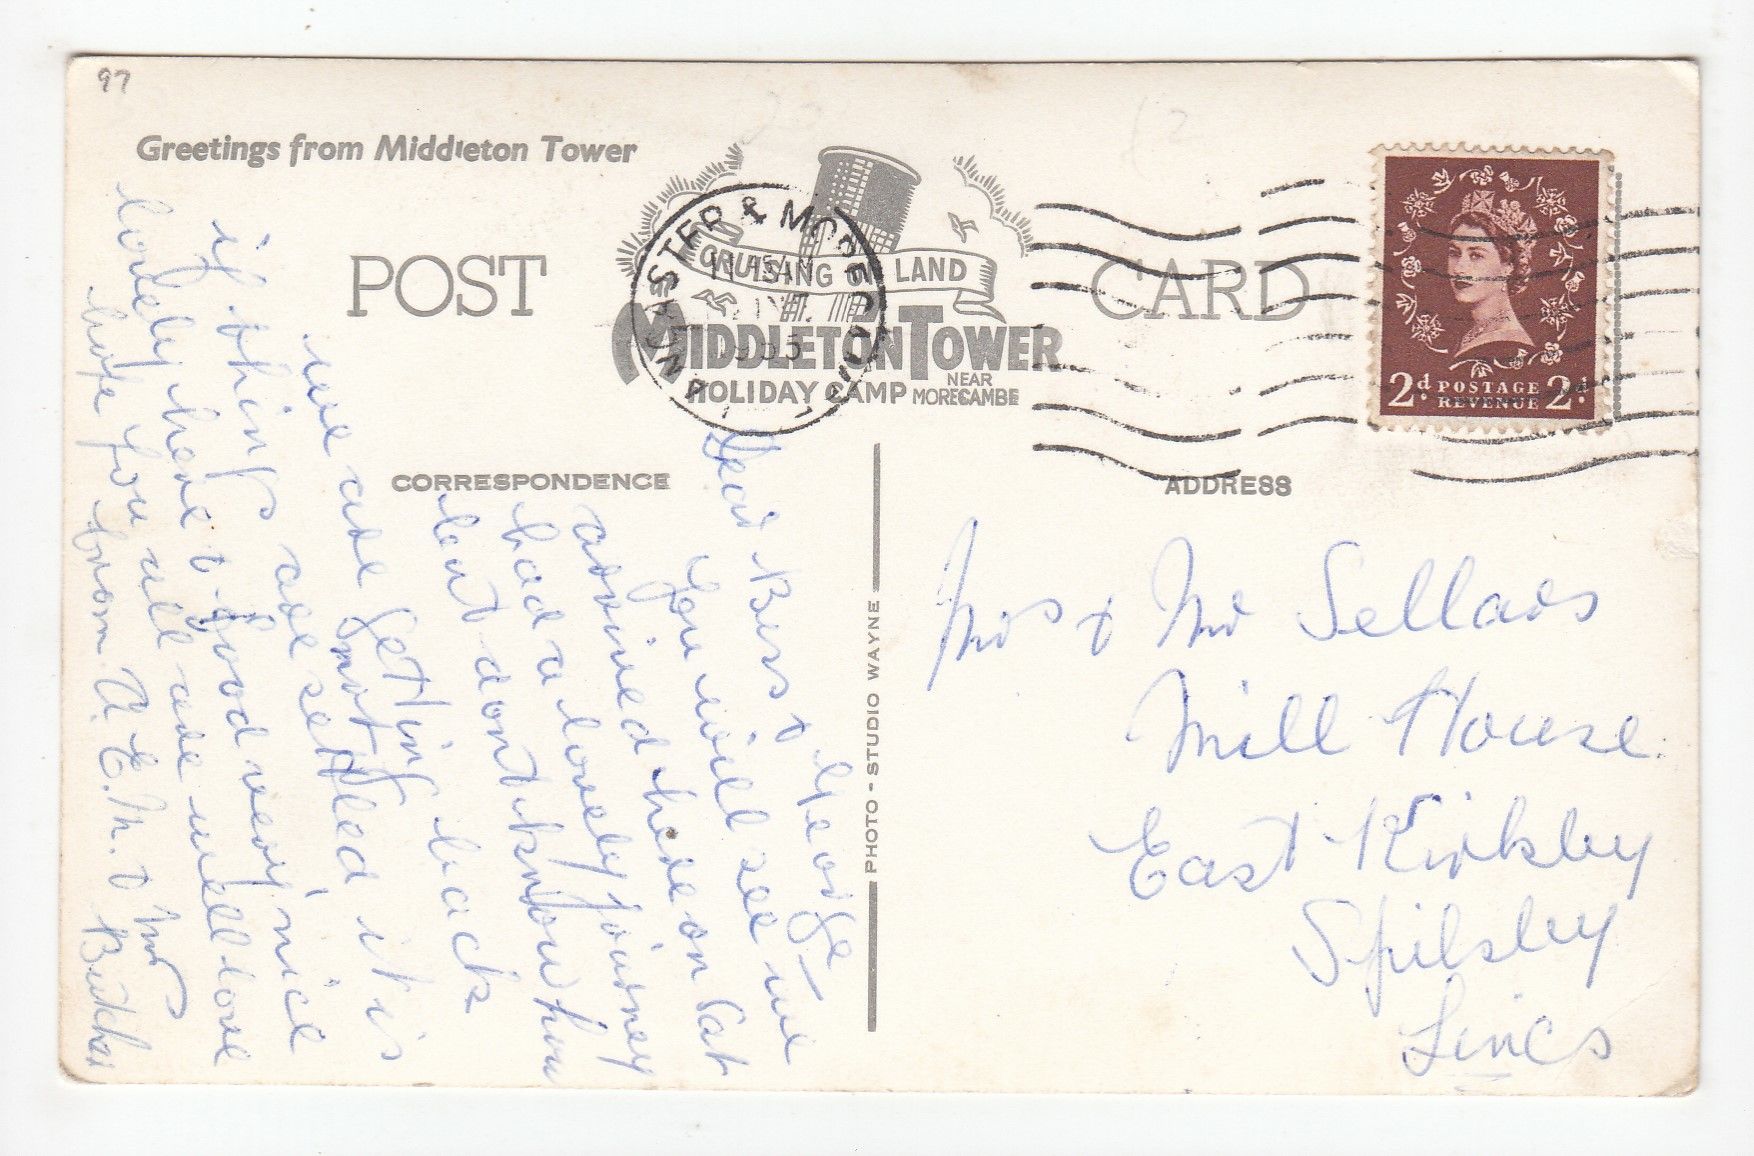 97
Greetings from Middleton Tower
POST CARD
CRUISING LAND
MIDDLETON TOWER
HOLIDAY CAMP NEAR MORECAMBE
LANCASTER & MORECAMBE
1955
2d POSTAGE 2d
REVENUE
CORRESPONDENCE
ADDRESS
Dear Burst & George
You will see we
arrived here on Sat
had a lovely journey
but dont know how
we are getting back
if things are not settled it is
lovely here & food very nice
hope you all are well love
from A. E. M. & Mr Butcher
PHOTO - STUDIO WAYNE
Mrs & Mr Sellars
Mill House
East Kirkby
Spilsby
Lincs